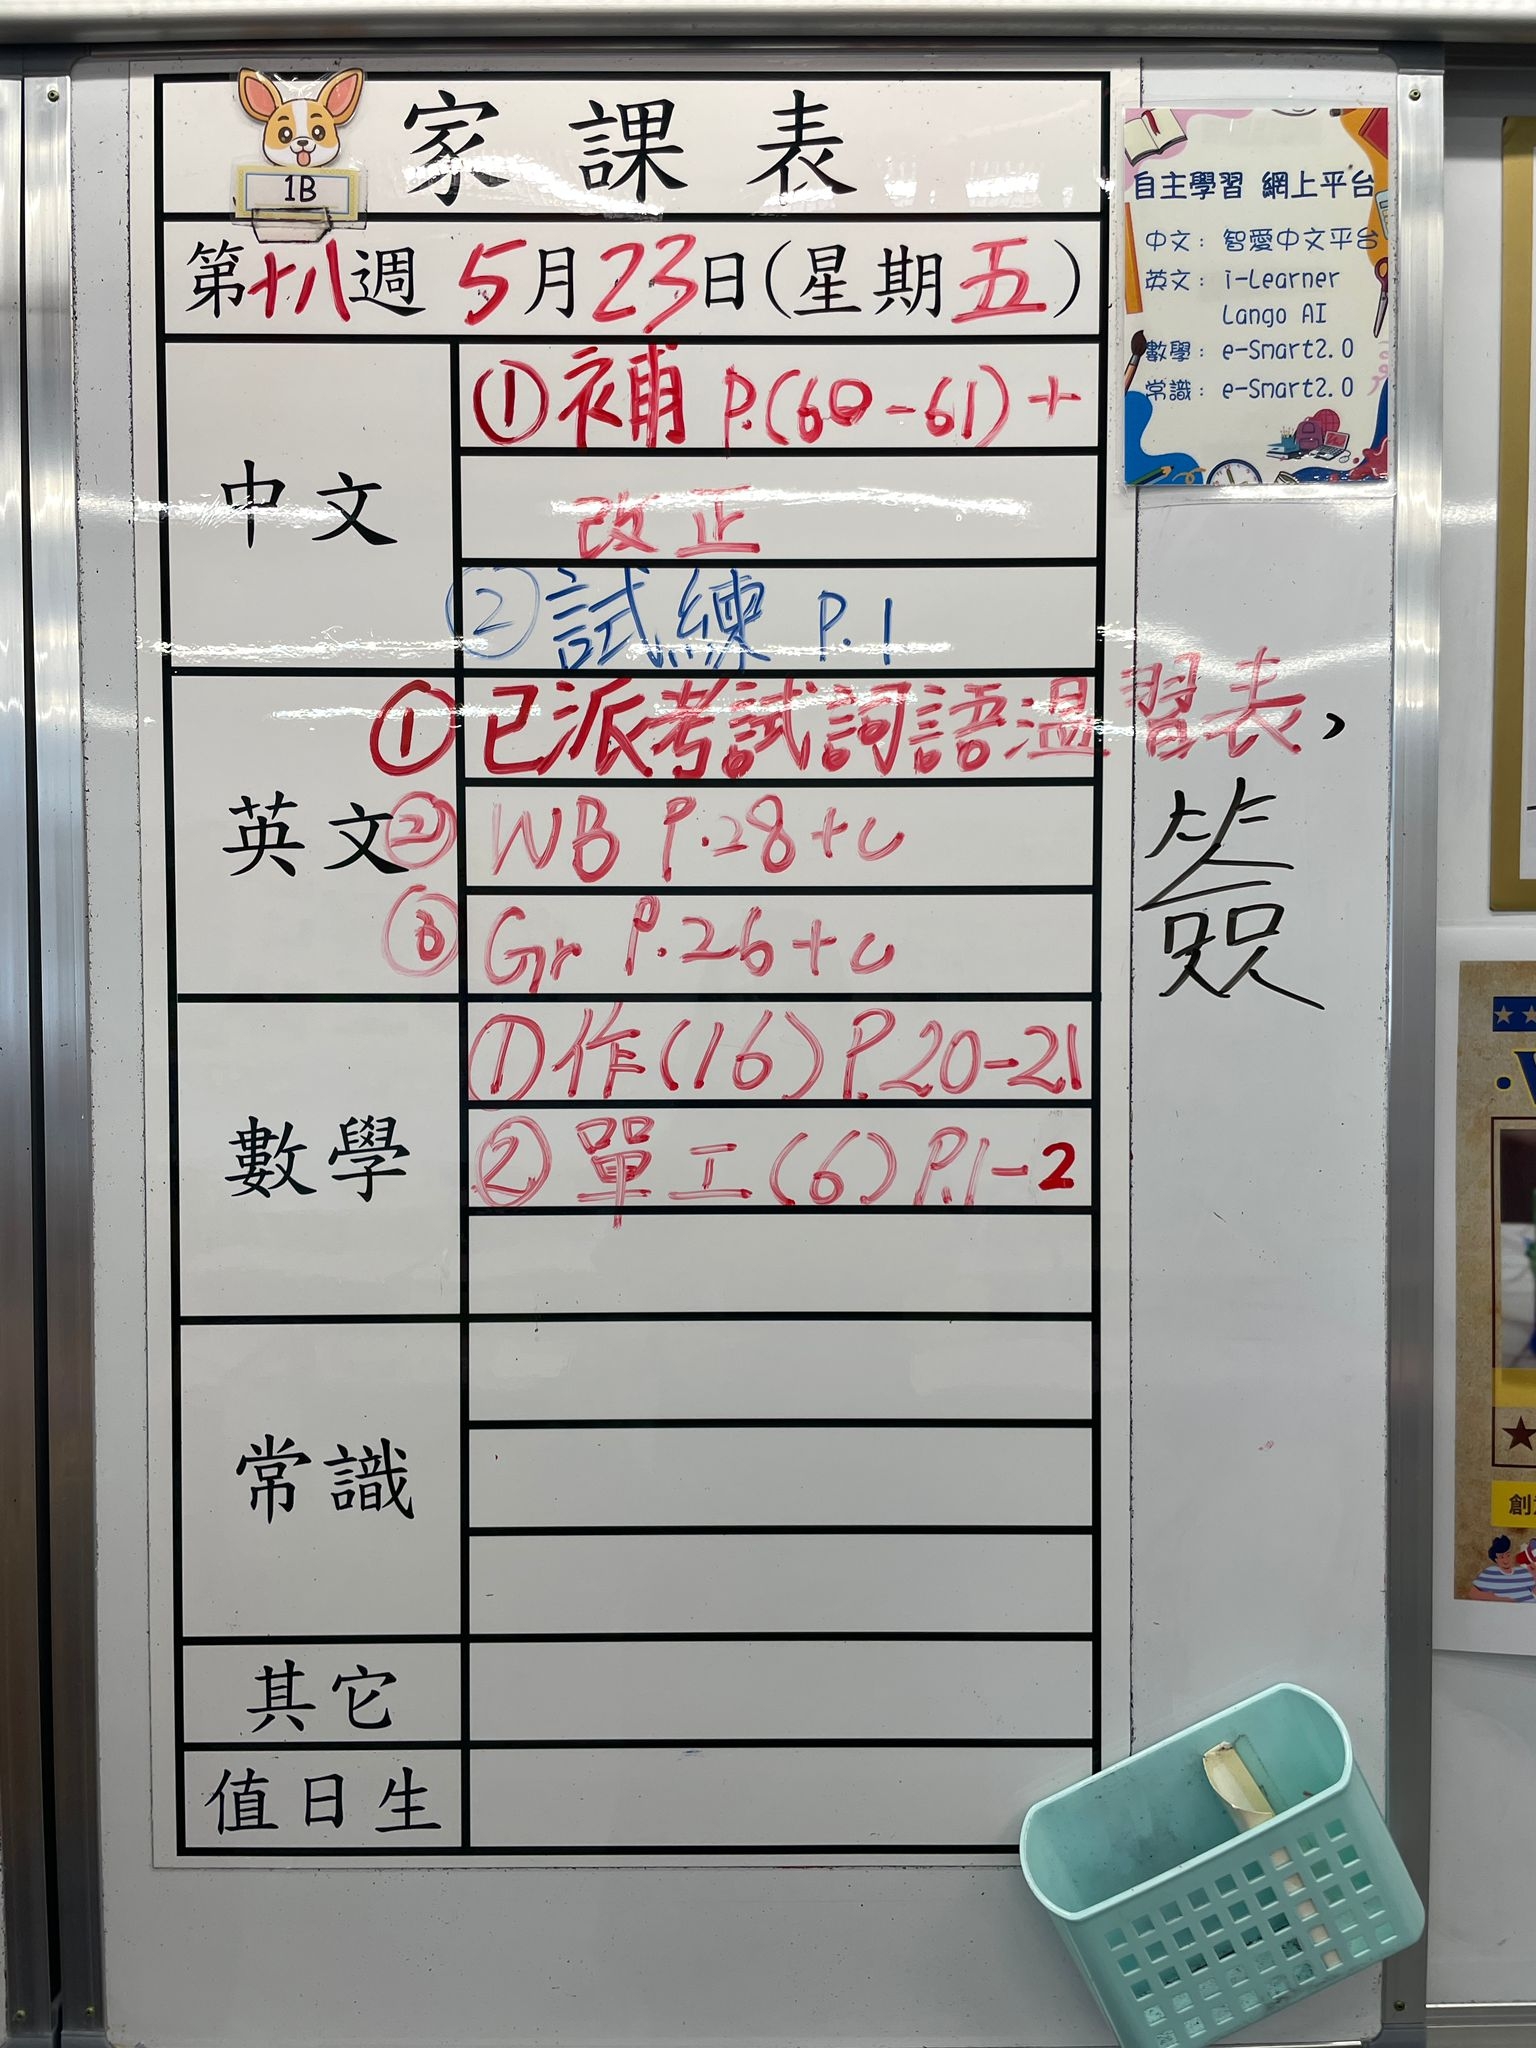 家課表
1B
第十八週 5月23日(星期五)
中文
①補 P.(60-61)+
改正
②試練 P.1
英文
①已派考試詞語溫習表,
簽
②WB P.28+c
Gr P.26+c
數學
①作(16)P.20-21
②單工(6)P.1-2
常識
其它
值日生
自主學習 網上平台
中文: 智愛中文平台
英文: i-Learner
Lango AI
數學: e-Smart2.0
常識: e-Smart2.0